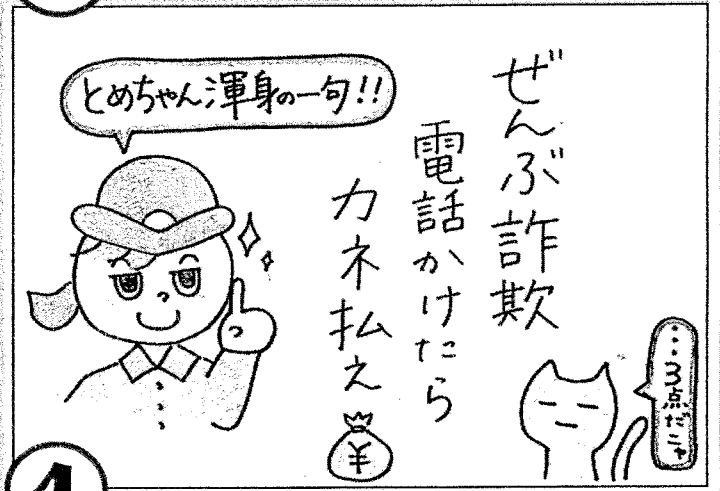 とめちゃん渾身の一句!!
ぜんぶ詐欺
電話かけたら
カネ払え
¥
…3点だニャ
4